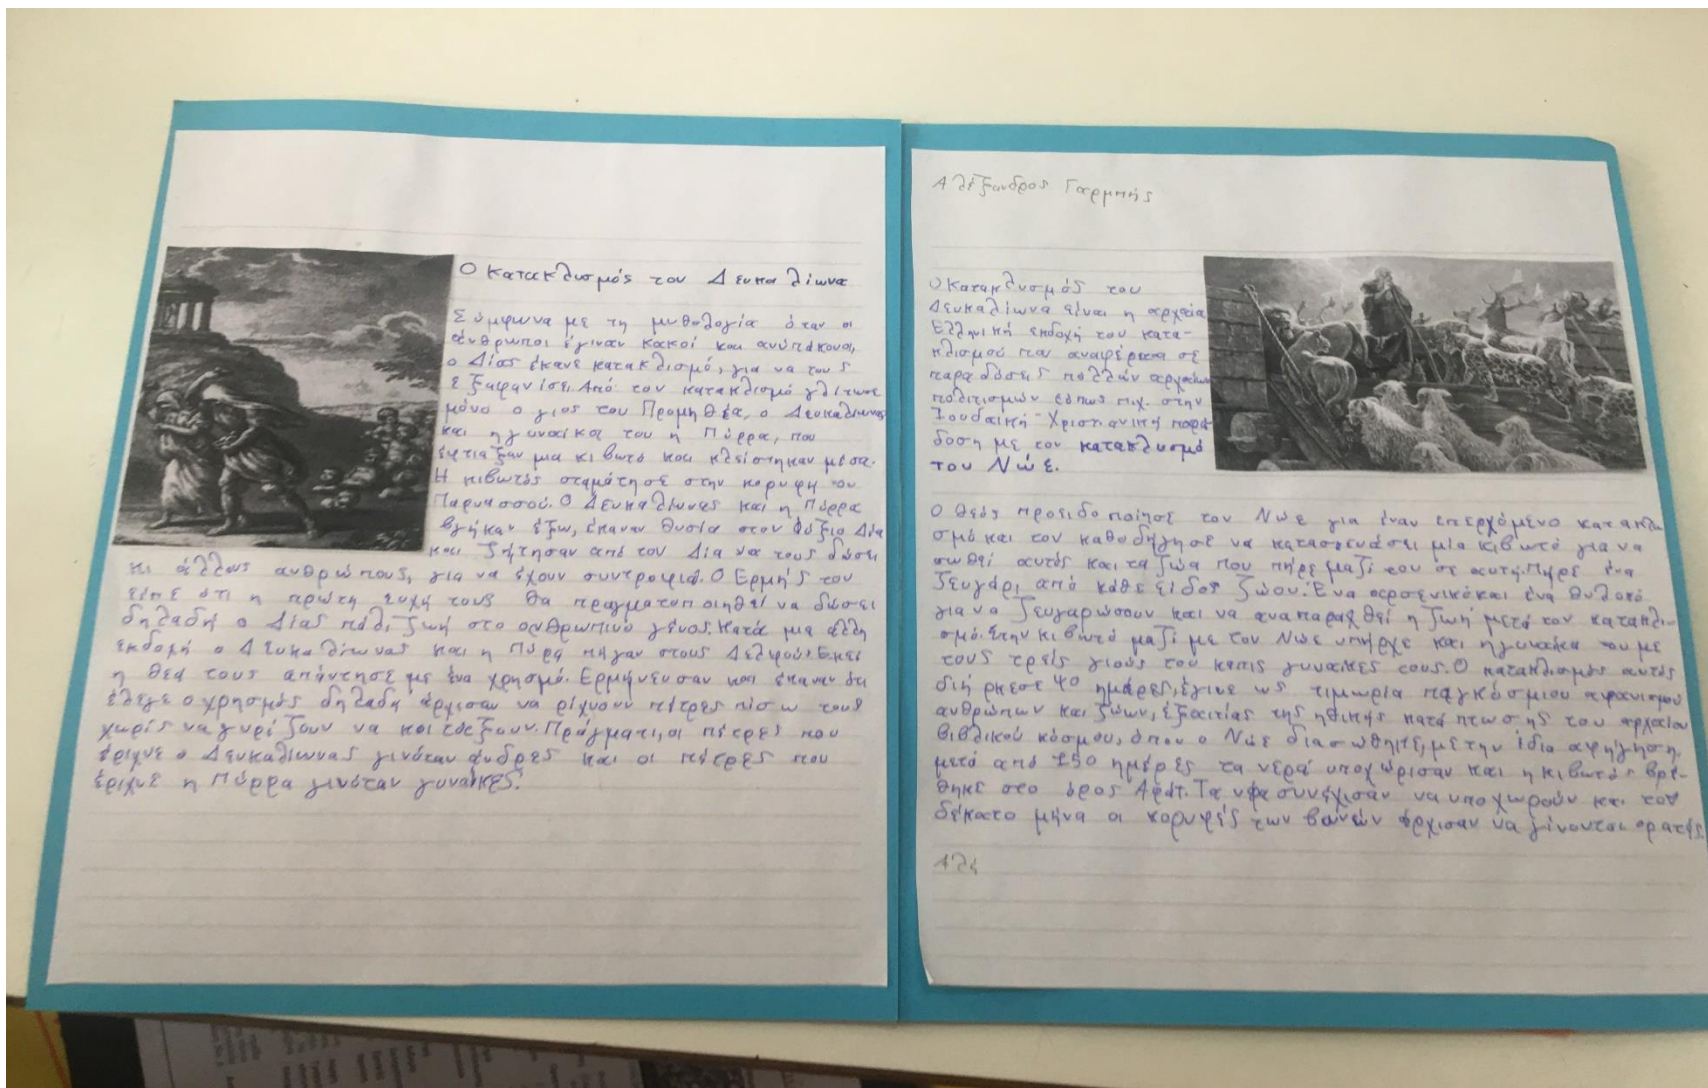 Ο Κατακλισμός του Δευκαλίωνα
Σύμφωνα με τη μυθολογία όταν οι
άνθρωποι έγιναν κακοί και ανυπάκουοι,
ο Δίας έκανε κατακλισμό, για να τους
εξαφανίσει. Από τον κατακλισμό γλίτωσε
μόνο ο γιος του Προμηθέα, ο Δευκαλίωνας
και η γυναίκα του η Πύρρα, που
έφτιαξαν μια κιβωτό και κλείστηκαν μέσα.
Η κιβωτός σταμάτησε στην κορυφή του
Παρνασσού. Ο Δευκαλίωνας και η Πύρρα
βγήκαν έξω, έκαναν θυσία στον Φύξιο Δία
και ζήτησαν από τον Δία να τους δώσει
κι άλλους ανθρώπους, για να έχουν συντροφιά. Ο Ερμής του
είπε ότι η πρώτη ευχή τους θα πραγματοποιηθεί να δώσει
δηλαδή ο Δίας πάλι ζωή στο ανθρώπινο γένος. Κατά μια άλλη
εκδοχή ο Δευκαλίωνας και η Πύρα πήγαν στους Δελφούς. Εκεί
η θεά τους απάντησε με ένα χρησμό. Ερμήνευσαν και έκαναν ότι
έλεγε ο χρησμός δηλαδή άρχισαν να ρίχνουν πέτρες πίσω τους
χωρίς να γυρίζουν να κοιτάξουν. Πράγματι, οι πέτρες που
έριχνε ο Δευκαλίωνας γινόταν άνδρες και οι πέτρες που
έριχνε η Πύρρα γινόταν γυναίκες.
Αλέξανδρος Γαρμπής
Ο Κατακλυσμός του
Δευκαλίωνα είναι η αρχαία
Ελληνική εκδοχή του κατα-
κλισμού που αναφέρεται σε
παραδόσεις πολλών αρχαίων
πολιτισμών όπως π.χ. στην
Ιουδαϊκή-Χριστιανική παρά
δοση με τον κατακλυσμό
του Νώε.
Ο θεός προειδοποίησε τον Νώε για έναν επερχόμενο κατακλυ
σμό και τον καθοδήγησε να κατασκευάσει μία κιβωτό για να
σωθεί αυτός και τα ζώα που πήρε μαζί του σε αυτή. Πήρε ένα
ζευγάρι από κάθε είδος ζώου. Ένα αρσενικό και ένα θυλακό
για να ζευγαρώσουν και να αναπαραχθεί η ζωή μετά τον κατακλι-
σμό. Στην κιβωτό μαζί με τον Νώε υπήρχε και η γυναίκα του με
τους τρείς γιούς του και τις γυναίκες τους. Ο κατακλισμός αυτός
διήρκεσε 40 ημέρες, έγινε ως τιμωρία παγκόσμιου αφανισμού
ανθρώπων και ζώων, εξαιτίας της ηθικής κατάπτωσης του αρχαίου
βιβλικού κόσμου, όπου ο Νώε με την ίδια αφήγηση,
μετά από 150 ημέρες τα νερά υποχώρισαν και η κιβωτός βρέ-
θηκε στο όρος Αράτ. Τα συνέχισαν να υποχωρούν και τον
δέκατο μήνα οι κορυφές των βουνών άρχισαν να γίνονται ορατές.
Αλέ